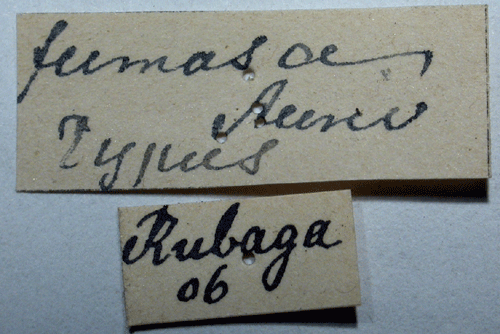 fumosa
Auriv
Typus
Rubaga
06